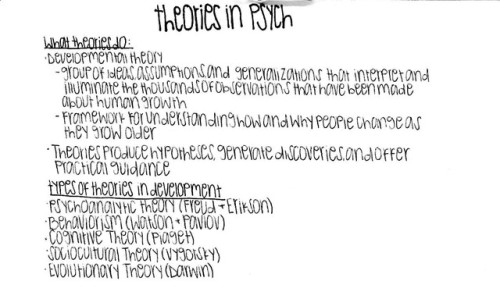 theories in Psych
What theories do:
·Developmental theory
-group of ideas, assumptions, and generalizations that interpret and
illuminate the thousands of observations that have been made
about human growth
-Framework for understanding how and why people change as
they grow older
·Theories produce hypotheses, generate discoveries, and offer
Practical guidance
types of theories in development
·Psychoanalytic Theory (Freud + Erikson)
·Behaviorism (Watson + Pavlov)
·Cognitive Theory (Piaget)
·Sociocultural Theory (Vygotsky)
·Evolutionary Theory (Darwin)